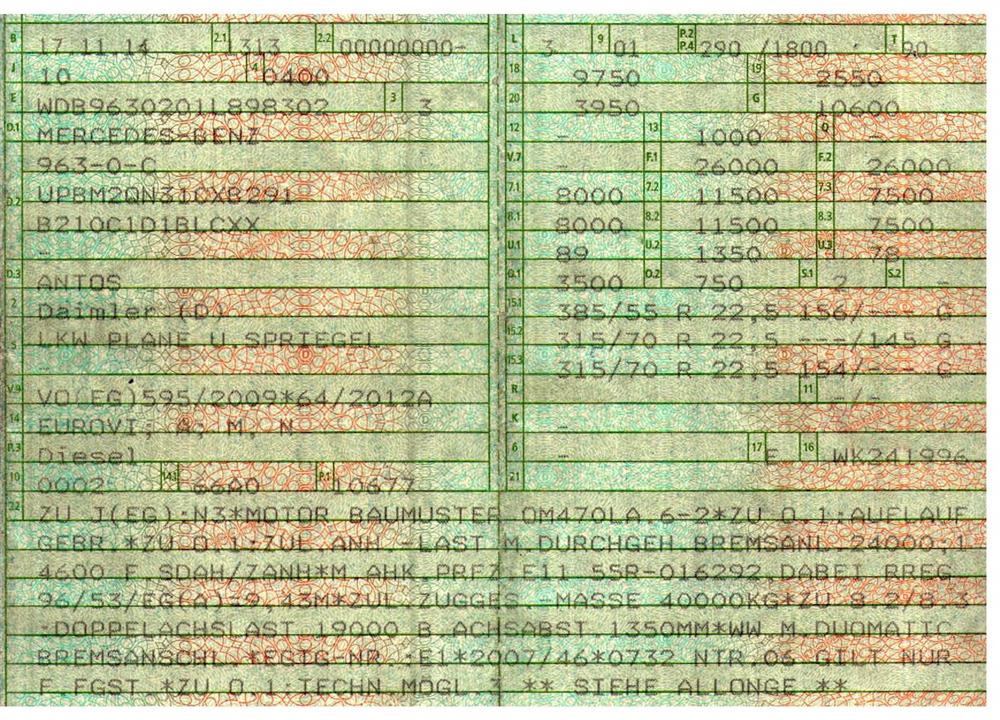 B 17.11.14 2.1 1313 2.2 00000000-
J 10 4 0400
E WDB9630201L898302 3 3
D.1 MERCEDES-BENZ
963-0-C
D.2 UPBM2QN31CXB291
B210C1D1BLCXX
-
D.3 ANTOS
2 Daimler (D)
5 LKW PLANE U.SPRIEGEL
-
V.9 VO(EG)595/2009*64/2012A
14 EUROVI; A; M, N
P.3 Diesel
10 0002 14.1 66A0 P.1 10677
L 3 9 01 P.2 P.4 290 /1800 T 90
18 9750 19 2550
20 3950 G 10600
12 - 13 1000 Q -
V.7 - F.1 26000 F.2 26000
7.1 8000 7.2 11500 7.3 7500
8.1 8000 8.2 11500 8.3 7500
U.1 89 U.2 1350 U.3 78
O.1 3500 O.2 750 S.1 2 S.2 -
15.1 385/55 R 22,5 156/--- G
15.2 315/70 R 22,5 ---/145 G
15.3 315/70 R 22,5 154/--- G
R 11 -/-
K -
6 - 17 E 16 WK241996
21
22 ZU J(EG):N3*MOTOR BAUMUSTER OM470LA.6-2*ZU O.1:AUFLAUF
GEBR.*ZU O.1:ZUL.ANH.-LAST M.DURCHGEH.BREMSANL.24000;1
4600 F SDAH/ZANH*M.AHK PRFZ E11 55R-016292 DABEI BREG
96/53/EG(A)=9,43M*ZUL.ZUGGES.-MASSE 40000KG*ZU 8.2/8.3
:DOPPELACHSLAST 19000 B ACHSABST 1350MM*WW M.DUOMATIC
BREMSANSCHL.*EGTG-NR.:E1*2007/46*0732 NTR.06 GILT NUR
F FGST.*ZU O.1:TECHN.MÖGL.3 ** SIEHE ALLONGE **